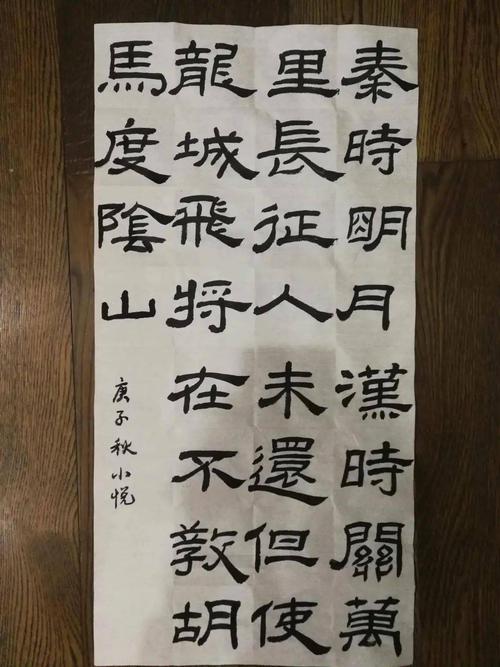 秦時明月漢時關萬
里長征人未還但使
龍城飛將在不敎胡
馬度陰山
庚子秋小悦